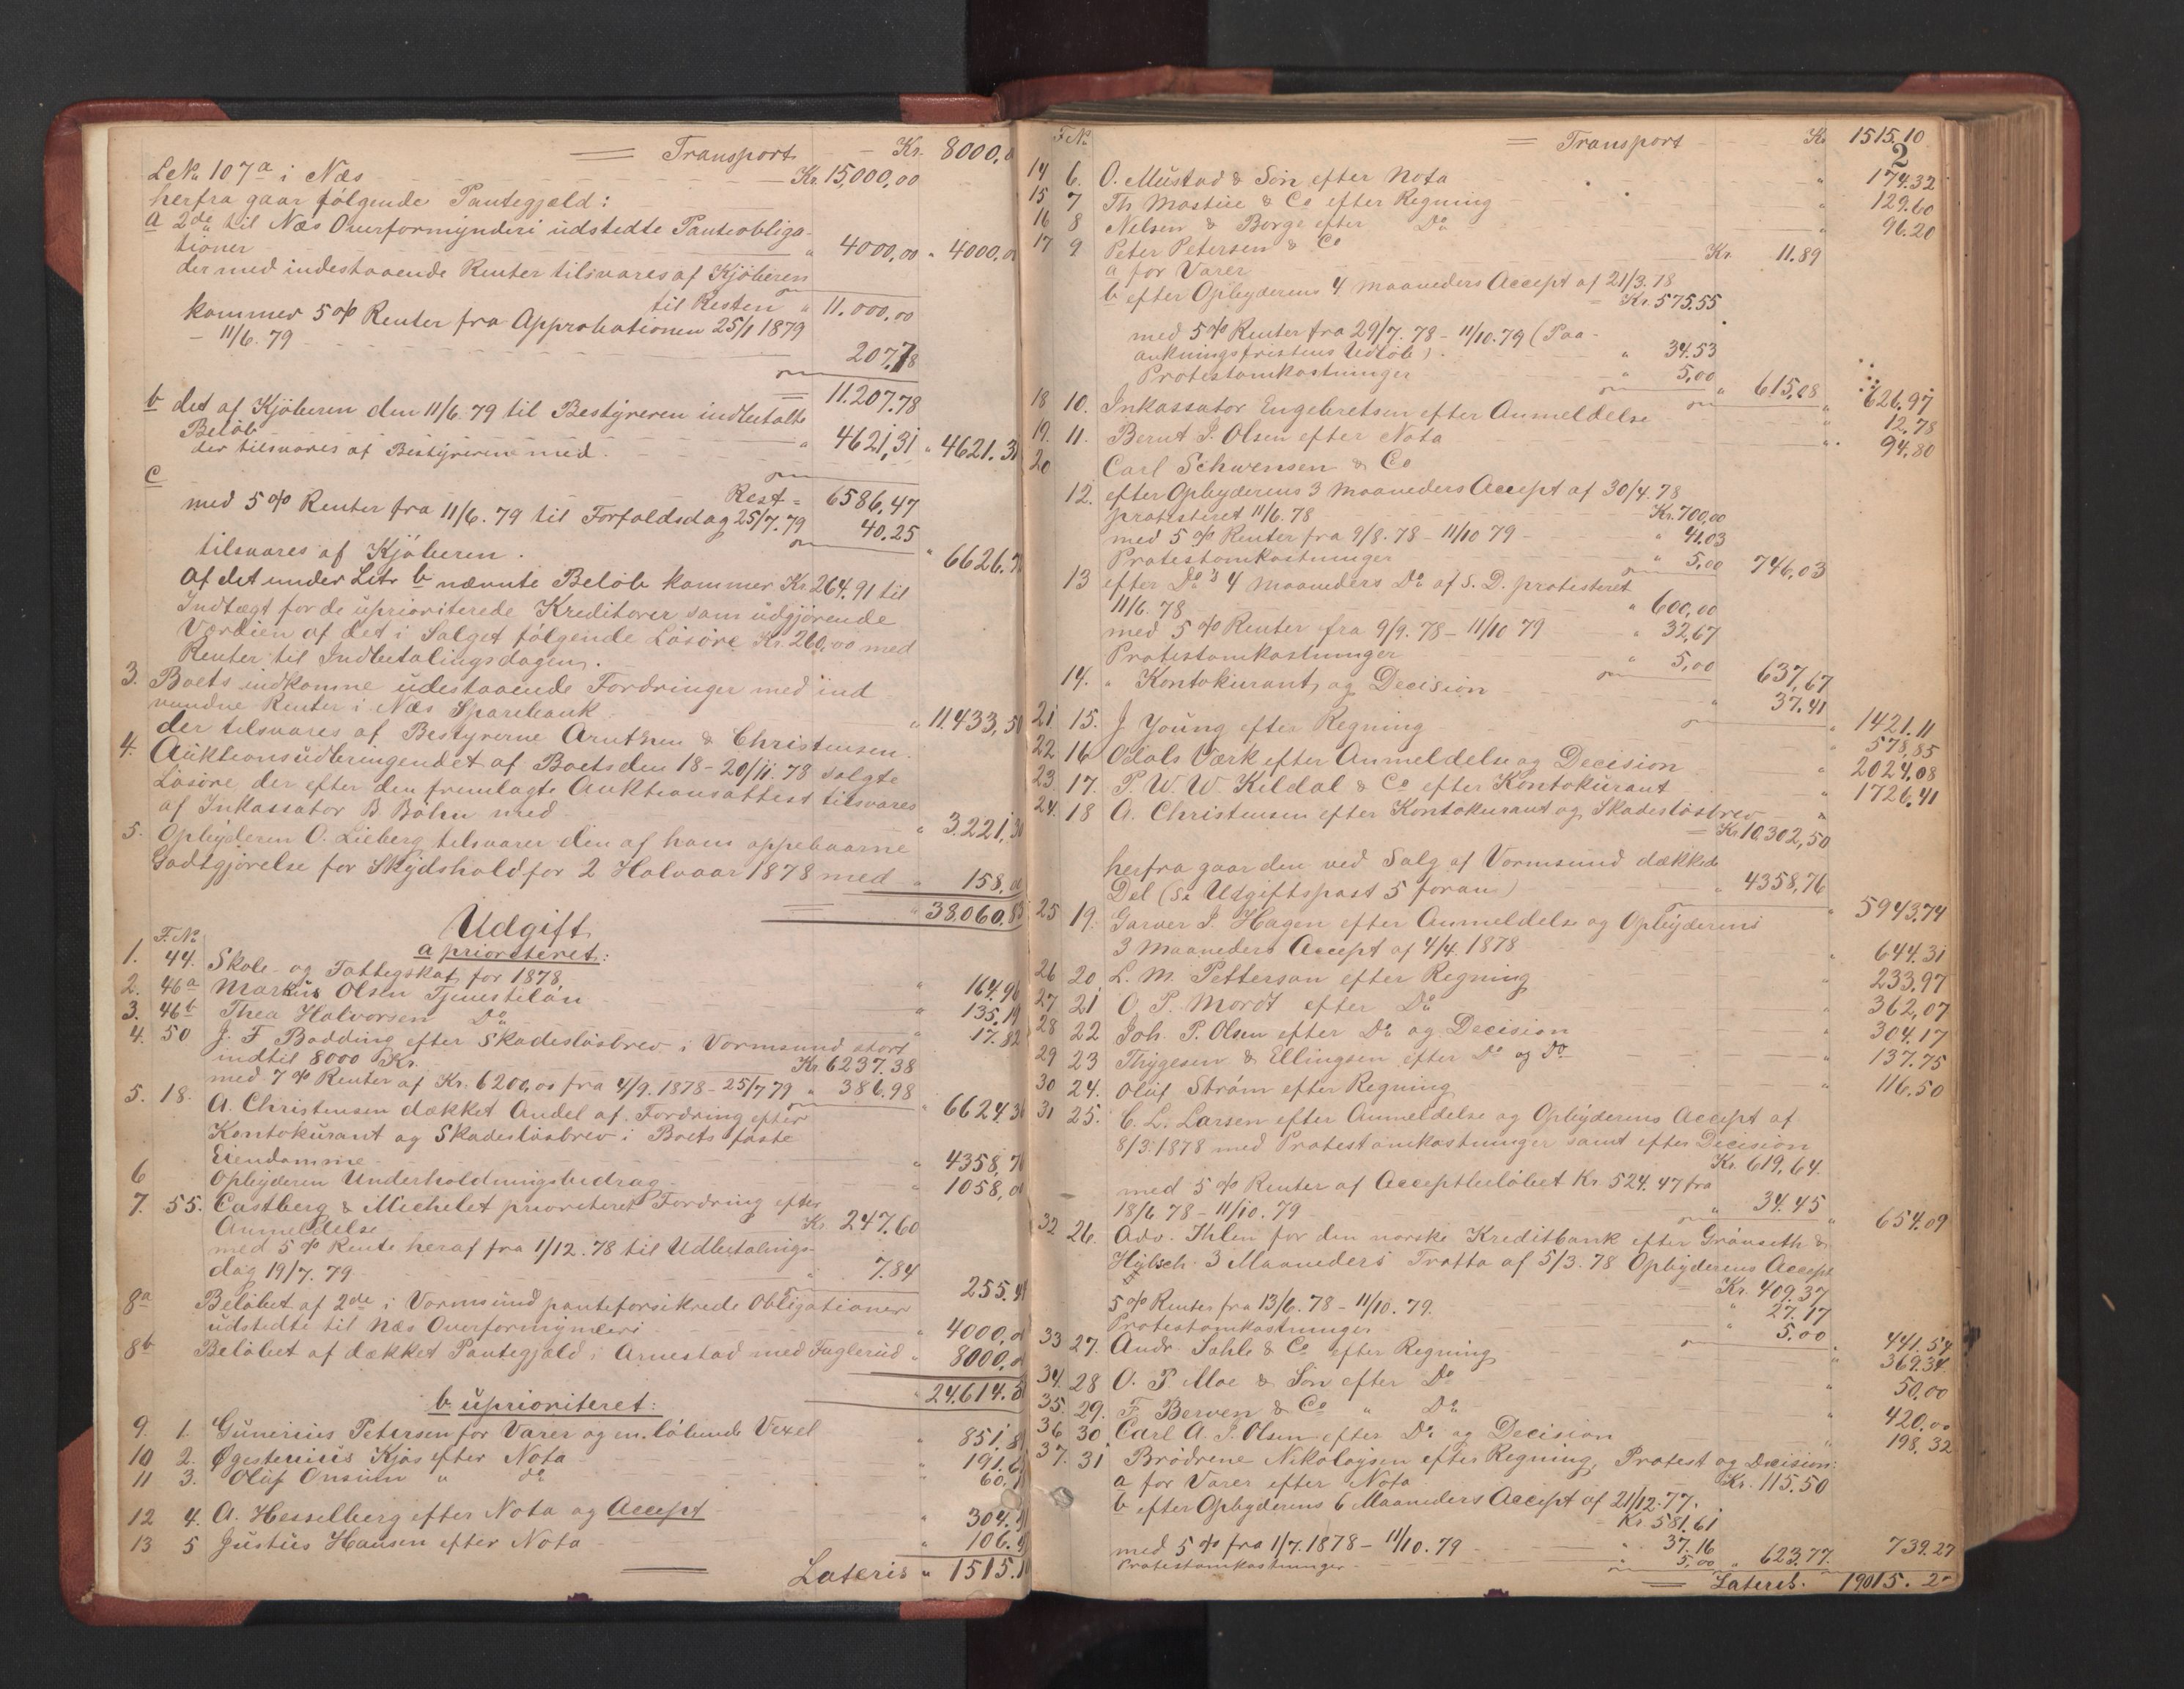 = Transport - Kr. 8000,
LeNo 107a i Næs - - - Kr. 15,000,00
herfra gaar følgende Pantegjæld:
a 2de til Næs Overformynderi udstedte Panteobliga-
tioner - - " 4000,00 " 4000,
der med indestaaende Renter tilsvares af Kjøberen
til Resten " 11.000,00
kommer 5% Renter fra Approbationen 25/1 1879
- 11/6. 79 - - - 207,78
= 11.207.78
b det af Kjøberen den 11/6. 79 til Bestyreren indbetalte
Beløb - - " 4621,31 " 4621.31
der tilsvares af Bestyrerne med.
c Rest = 6586,47
med 5% Renter fra 11/6. 79 til Forfaldsdag 25/7. 79 40.25
tilsvares af Kjøberen. " 6626.7
Af det under Litr b nævnte Beløb kommer Kr. 264.91 til
Indtægt for de uprioriterede Kreditorer som udgjørende
Værdien af det i Salget følgende Løsøre Kr. 260,00 med
Renter til Indbetalingsdagen.
3. Boets indkomne udestaaende Fordringer med ind-
vundne Renter i Næs Sparebank
der tilsvares af Bestyrerne Arntzen & Christensen. " 11.433,50
4. Auktionsudbringendet af Boets den 18-20/11. 78 solgte
Løsøre der efter den fremlagte Auktionsattest tilsvares
af Inkassator B. Böhn med " 3.221,30
5. Opbyderen O. Lieberg tilsvarer den af ham oppebaarne
Godtgjørelse for Skydshold for 2 Halvaar 1878 med " 158,
= " 38.060.85
Udgift
F. No a prioriteret:
1. 44. Skole- og Fattigskat for 1878 " 164.96
2. 46a Markus Olsen Tjenesteløn " 135.19
3. 46b Thea Halvorsen Do " 17.82
4. 50 J. F. Bødding efter Skadesløsbrev i Vormsund stort
indtil 8000 Kr. Kr 6237.38
med 7% Renter af Kr. 6200,00 fra 4/9. 1878 - 25/7 79 " 386.98 " 6624.36
5. 18. A. Christensen dækket Andel af Fordring efter
Kontokurant og Skadesløsbrev i Boets faste
Eiendomme " 4358,76
6 Opbyderen Underholdningsbidrag " 1058,
7. 55. Castberg & Michelet prioriteret Fordring efter
Anmeldelse Kr 247.60
med 5% Rente heraf fra 1/12. 78 til Udbetalings-
dag 19/7. 79 " 7.84 255.4
8a Beløbet af 2de i Vormsund panteforsikrede Obligationer
udstedte til Næs Overformynderi " 4000,
8b Beløbet af dækket Pantegjæld i Arnestad med Fuglerud " 8000,
" 24.614.5
b uprioriteret:
9. 1. Gunerius Petersen for Varer og en løbende Vexel " 851.8
10 2. Øgestenius Kjøs efter Nota " 191.6
11 3. Oluf Onsum " do " 60.
12 4. A. Hesselberg efter Nota og Accept " 304.9
13 5 Justus Hansen efter Nota " 106.9
Lateris " 1515.10
F No. = Transport Kr 1515,10
2
14 6. O. Mustad & Søn efter Nota " 174.32
15 7 Th. Mostue & Co efter Regning " 129.60
16 8 Nelsen & Borge efter Do " 96.20
17 9 Peter Petersen & Co
a for Varer Kr. 11.89
b efter Opbyderens 4 Maaneders Accept af 21/3. 78
= Kr. 575.55
med 5% Renter fra 29/7. 78 - 11/10. 79 (Paa-
ankningsfristens Udløb). " 34.53
Protestomkostninger " 5,00 " 615,08 " 626.97
18 10. Inkassator Engebretsen efter Anmeldelse " 12,78
19. 11. Bernt J. Olsen efter Nota " 94,80
20 Carl Schwensen & Co
12. efter Opbyderens 3 Maaneders Accept af 30/4. 78
protesteret 11/6. 78 Kr. 700,00
med 5% Renter fra 9/8. 78 - 11/10 79 - " 41.03
Protestomkostninger " 5,00 746,03
13 efter Do's 4 Maaneders Do af S. D. protesteret
11/6. 78 " 600,00
med 5% Renter fra 9/9. 78 - 11/10 79 " 32,67
Protestomkostninger " 5,00 637,67
14. " Kontokurant og Decision " 37.41 " 1421.11
21 15. J Young efter Regning " 578,85
22 16 Odals Værk efter Anmeldelse og Decision " 2024.08
23 17. P. W. W. Kildal & Co efter Kontokurant " 1726,41
24. 18 A. Christensen efter Kontokurant og Skadesløsbrev "
= Kr 10.302,50
herfra gaar den ved Salg af Vormsund dækkede
Del (se Udgiftspost 5 foran) " 4358,76 " 5943,74
25 19. Garver J. Hagen efter Anmeldelse og Opbyderens
3 Maaneders Accept af 4/4. 1878 " 644.31
26 20. L. M. Petterson efter Regning " 233,97
27 21 O. P. Mordt efter Do " 362,07
28 22 Joh. P. Olsen efter Do og Decision " 304.17
29 23 Thygesen & Ellingsen efter Do og Do " 137.75
30 24. Oluf Strøm efter Regning " 116,50
31 25. C. L. Larsen efter Anmeldelse og Opbyderens Accept af
8/3. 1878 med Protestomkostninger samt efter Decision
Kr. 619,64.
med 5% Renter af Acceptbeløbet Kr. 524.47 fra
18/6 78 - 11/10. 79 " 34.45 " 654.09
32 26. Adv. Ihlen for den norske Kreditbank efter Grønseth &
Hübsch 3 Maaneders Tratta af 5/3. 78 Opbyderens Accept
Kr. 409.37
5% Renter fra 13/6. 78 - 11/10. 79. " 27.17
Protestomkostninger " 5.00 " 441.54
33 27. Andr. Sahle & Co efter Regning " 369.34
34. 28 O. P. Moe & Søn efter Do " 50,00
35. 29. F. Berven & Co " Do " 420,00
36 30 Carl A. J. Olsen efter Do og Decision " 198.32
37. 31 Brødrene Nikolaysen efter Regning, Protest og Decision:
a for Varer efter Nota Kr. 115.50
b efter Opbyderens 6 Maaneders Accept af 21/12. 77.
= Kr 581.61
med 5% fra 1/7. 1878 - 11/10. 79 " 37.16
Protestomkostninger " 5,00 " 623.77. 739.27
= Lateris. 19015. 2